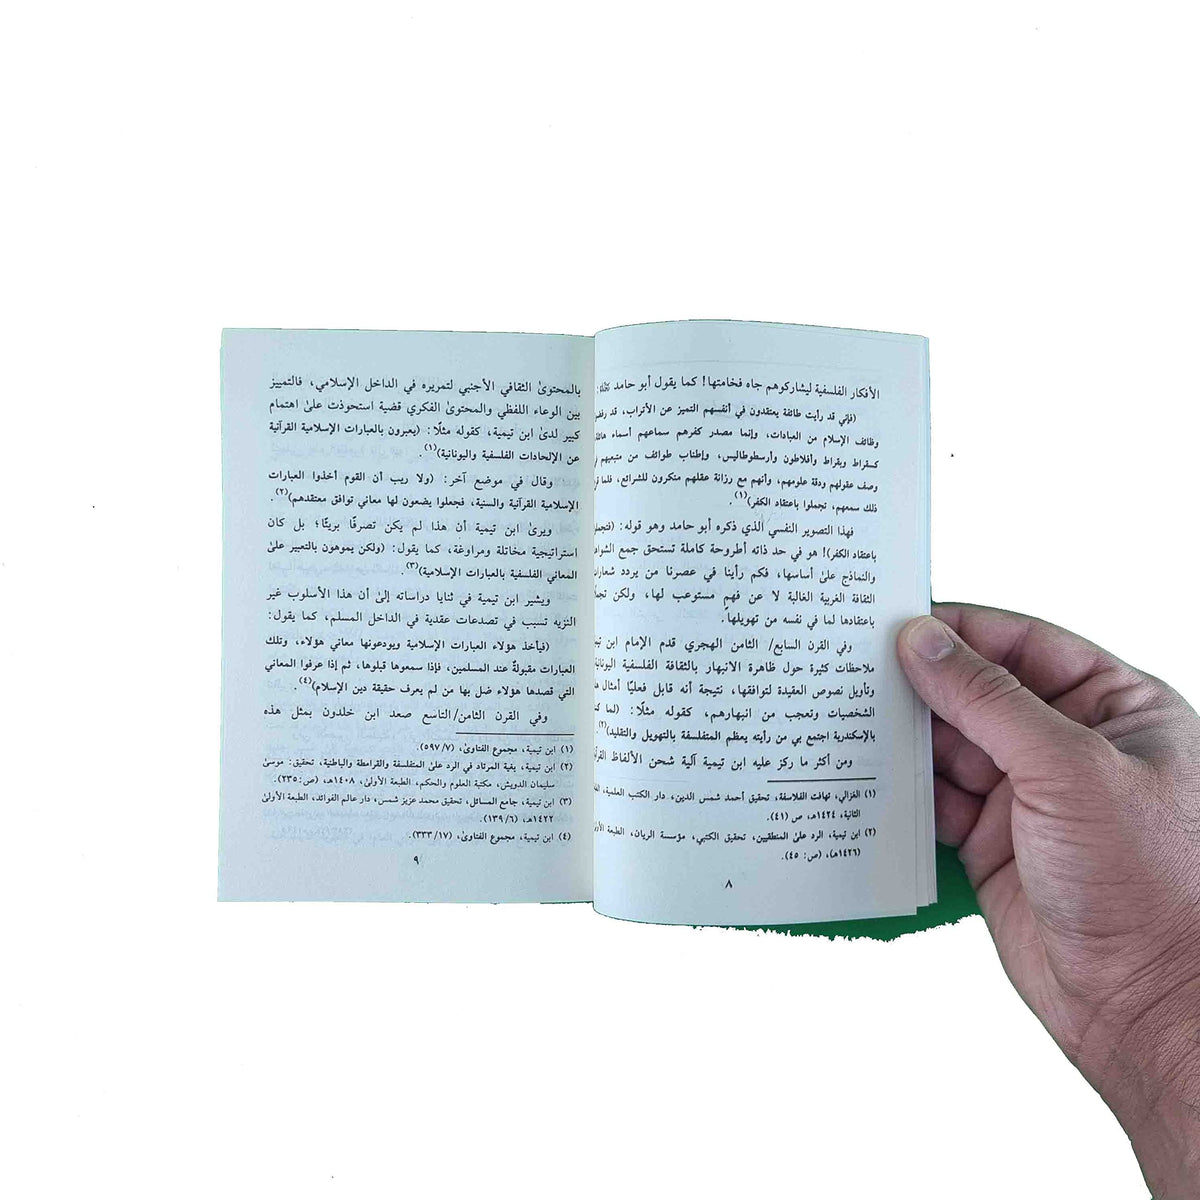 الأفكار الفلسفية ليشاركوهم جاه فخامتها! كما يقول أبو حامد
(فإني قد رأيت طائفة يعتقدون في أنفسهم التميز عن الأتراب، قد
وظائف الإسلام من العبادات، وإنما مصدر كفرهم سماعهم أسماء
كسقراط وبقراط وأفلاطون وأرسطوطاليس، وإطناب طوائف من متبعيهم في
وصف عقولهم ودقة علومهم، وأنهم مع رزانة عقلهم منكرون للشرائع، فلما
ذلك سمعهم، تجملوا باعتقاد الكفر)(١).
فهذا التصوير النفسي الذي ذكره أبو حامد وهو قوله:
باعتقاد الكفر)! هو في حد ذاته أطروحة كاملة تستحق جمع
والنماذج علىٰ أساسها، فكم رأينا في عصرنا من يردد
الثقافة الغربية الغالبة لا عن فهمٍ مستوعب لها، ولكن
باعتقادها لما في نفسه من تهويلها.
وفي القرن السابع/ الثامن الهجري قدم الإمام ابن
ملاحظات كثيرة حول ظاهرة الانبهار بالثقافة الفلسفية
وتأويل نصوص العقيدة لتوافقها، نتيجة أنه قابل فعليًا أمثال
الشخصيات وتعجب من انبهارهم، كقوله مثلًا: (لما
بالإسكندرية اجتمع بي من رأيته يعظم المتفلسفة بالتهويل والتقليد)(٢).
ومن أكثر ما ركز عليه ابن تيمية آلية شحن الألفاظ
(١) الغزالي، تهافت الفلاسفة، تحقيق أحمد شمس الدين، دار الكتب العلمية،
الثانية، ١٤٢٤هـ، ص (٤١).
(٢) ابن تيمية، الرد علىٰ المنطقيين، تحقيق الكتبي، مؤسسة الريان، الطبعة
(١٤٢٦هـ)، (ص: ٤٥).
٨
بالمحتوىٰ الثقافي الأجنبي لتمريره في الداخل الإسلامي، فالتمييز
بين الوعاء اللفظي والمحتوىٰ الفكري قضية استحوذت علىٰ اهتمام
كبير لدىٰ ابن تيمية، كقوله مثلًا: (يعبرون بالعبارات الإسلامية القرآنية
عن الإلحادات الفلسفية واليونانية)(١).
وقال في موضع آخر: (ولا ريب أن القوم أخذوا العبارات
الإسلامية القرآنية والسنية، فجعلوا يضعون لها معاني توافق معتقدهم)(٢).
ويرىٰ ابن تيمية أن هذا لم يكن تصرفًا بريئًا؛ بل كان
استراتيجية مخاتلة ومراوغة، كما يقول: (ولكن يموهون بالتعبير علىٰ
المعاني الفلسفية بالعبارات الإسلامية)(٣).
ويشير ابن تيمية في ثنايا دراساته إلىٰ أن هذا الأسلوب غير
النزيه تسبب في تصدعات عقدية في الداخل المسلم، كما يقول:
(فيأخذ هؤلاء العبارات الإسلامية ويودعونها معاني هؤلاء، وتلك
العبارات مقبولةٌ عند المسلمين، فإذا سمعوها قبلوها، ثم إذا عرفوا المعاني
التي قصدها هؤلاء ضل بها من لم يعرف حقيقة دين الإسلام)(٤).
وفي القرن الثامن/التاسع صعد ابن خلدون بمثل هذه
(١) ابن تيمية، مجموع الفتاوىٰ، (٥٩٧/٧).
(٢) ابن تيمية، بغية المرتاد في الرد علىٰ المتفلسفة والقرامطة والباطنية، تحقيق: موسىٰ
سليمان الدويش، مكتبة العلوم والحكم، الطبعة الأولىٰ، ١٤٠٨هـ، (ص:٢٣٥).
(٣) ابن تيمية، جامع المسائل، تحقيق محمد عزيز شمس، دار عالم الفوائد، الطبعة الأولىٰ
١٤٢٢هـ، (١٣٩/٦).
(٤) ابن تيمية، مجموع الفتاوىٰ، (٣٣٣/١٧).
٩